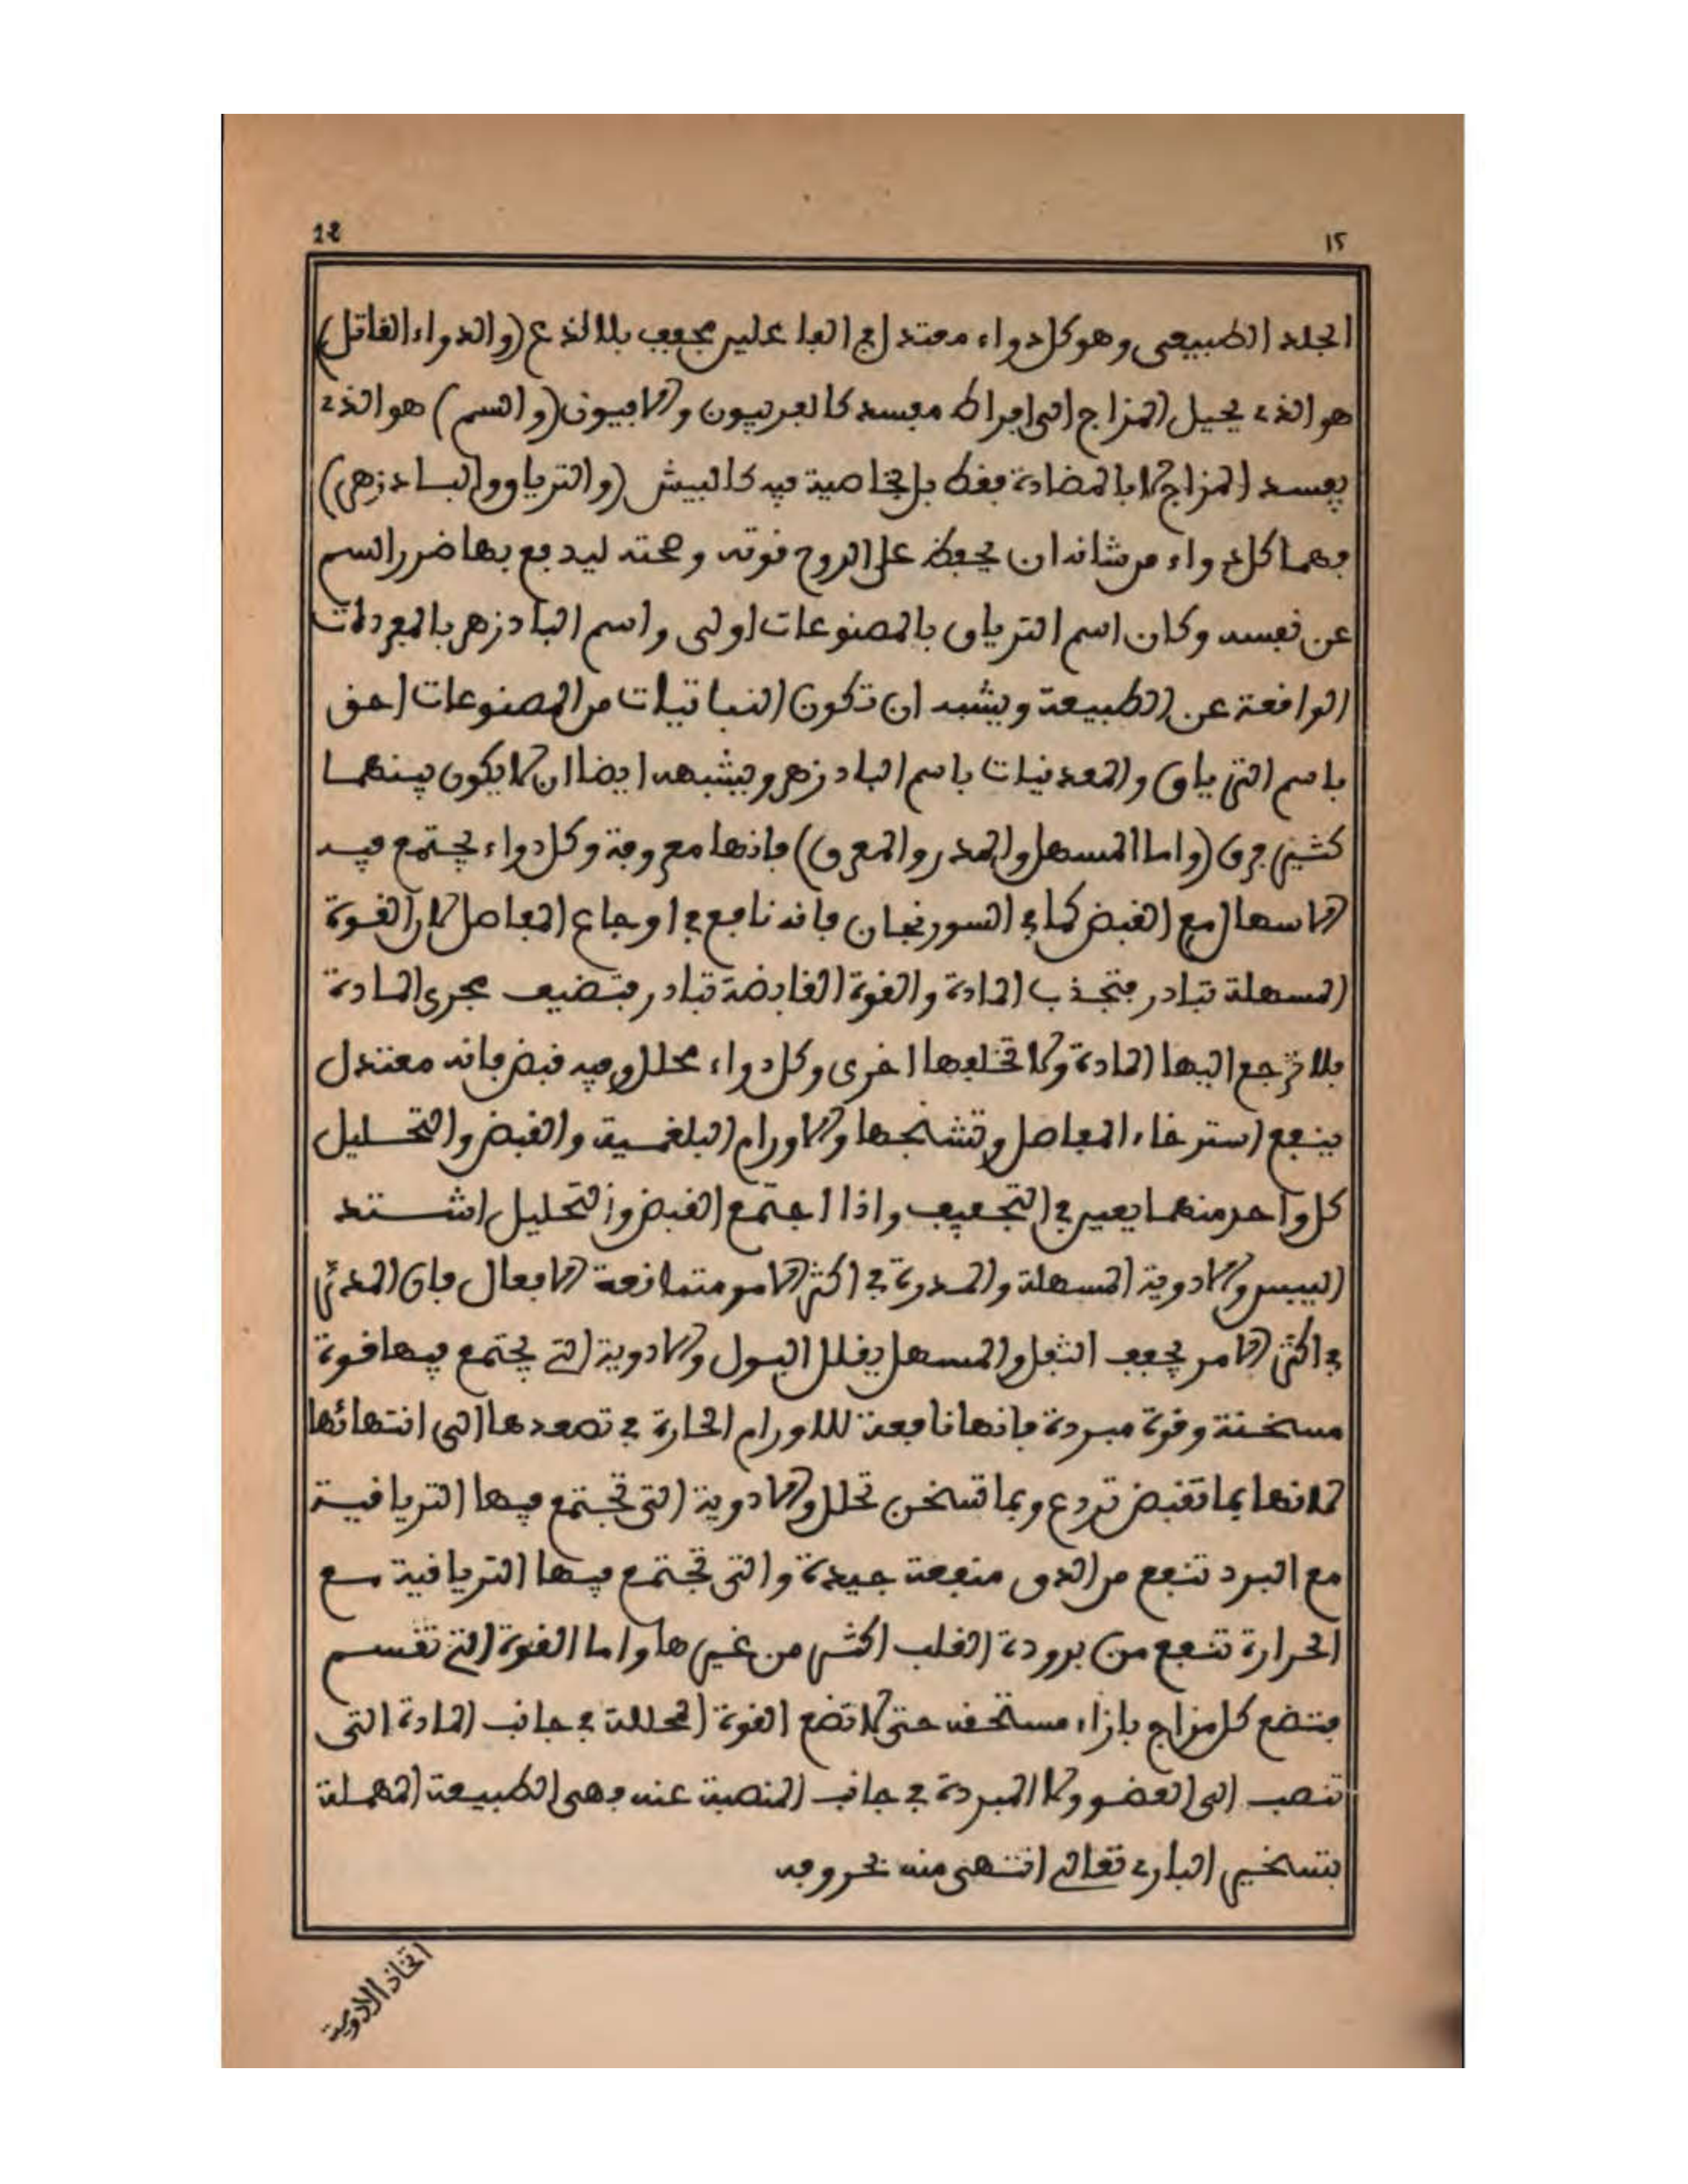 12 ١٢
الجلد الطبيعي وهو كل دواء معتدل في الفاعلين مجفف بلا لذع (والدواء القاتل)
هو الذي يحيل المزاج الى افراط مفسد كالفربيون والافيون (والسم) هو الذي
يفسد المزاج لا بالمضادة فقط بل بخاصية فيه كالبيش (والترياق والبادزهر)
فهما كل دواء من شانه ان يحفظ على الروح قوته وصحته ليدفع بها ضرر السم
عن نفسه وكان اسم الترياق بالمصنوعات اولى واسم البادزهر بالمفردات
الواقعة عن الطبيعة ويشبه ان تكون النباتيات من المصنوعات احق
باسم الترياق والمعدنيات باسم البادزهر ويشبه ايضا ان لا يكون بينهما
كثير فرق (واما المسهل والمدر والمعرق) فانها معروفة وكل دواء يجتمع فيه
الاسهال مع القبض كما في السورنجان فانه نافع في اوجاع المفاصل لان القوة
المسهلة تبادر فتجذب المادة والقوة القابضة تبادر فتضيف مجرى المادة
فلا ترجع اليها المادة ولا تخلفها اخرى وكل دواء محلل وفيه قبض فانه معتدل
ينفع استرخاء المفاصل وتشنجها والاورام البلغمية والقبض والتحليل
كل واحد منهما يعين في التجفيف واذا اجتمع القبض والتحليل اشتد
اليبس والادوية المسهلة والمدرة في اكثر الامر متمانعة الافعال فان المدر
في اكثر الامر يجفف الثفل والمسهل يقلل البول والادوية التي يجتمع فيها قوة
مسخنة وقوة مبردة فانها نافعة للاورام الحارة في تصعدها الى انتهائها
لانها بما تقبض تردع وبما تسخن تحلل والادوية التي تجتمع فيها الترياقية
مع البرد تنفع من الدق منفعة جيدة والتي تجتمع فيها الترياقية مع
الحرارة تنفع من برودة القلب اكثر من غيرها واما القوة التي تقسم
فتضع كل مزاج بازاء مستحقه حتى لا تضع القوة المحللة في جانب المادة التي
تنصب الى العضو ولا المبردة في جانب المنصبة عنه فهى الطبيعة المهملة
بتسخير البارى تعالى انتهى منه بحروفه
اتخاذ الادوية